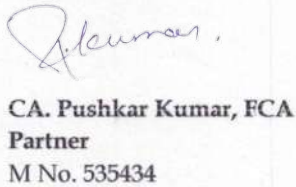 P.Kumar.
CA. Pushkar Kumar, FCA
Partner
M No. 535434